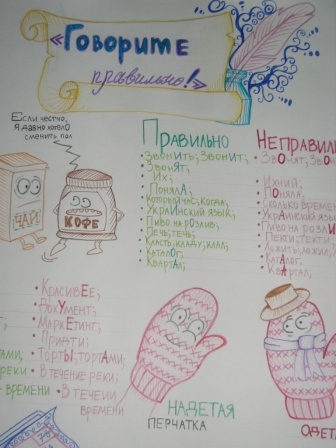 «Говорите
правильно!»
Если честно,
я давно хотело
сменить пол
ЧАЙ
КОФЕ
Правильно
• ЗвонИт; ЗвонИт;
• ЗвонЯт;
• Их;
• ПонялА;
• Который час; когда;
• УкраИнский язык;
• Пиво на рОзлив;
• Печь; течь;
• Класть, кладу; клал;
• КаталОг;
• КвартАл;
Неправил
• ЗвОнят; Зво
• Ихний;
• ПОнял
• Сколько време
• УкрАинский язы
• Пиво на розлИ
• Пекти; текти;
• Ложить; ложи;
• КатАлог
• КвАртал;
• КрасивЕе;
• ДокумЕнт;
• МаркЕтинг;
• Прийти;
• ТОрты; тОртами;
• В течение реки;
• В течении
времени
тами;
реки
времени
НАДЕТАЯ
ПЕРЧАТКА
ОДЕТ